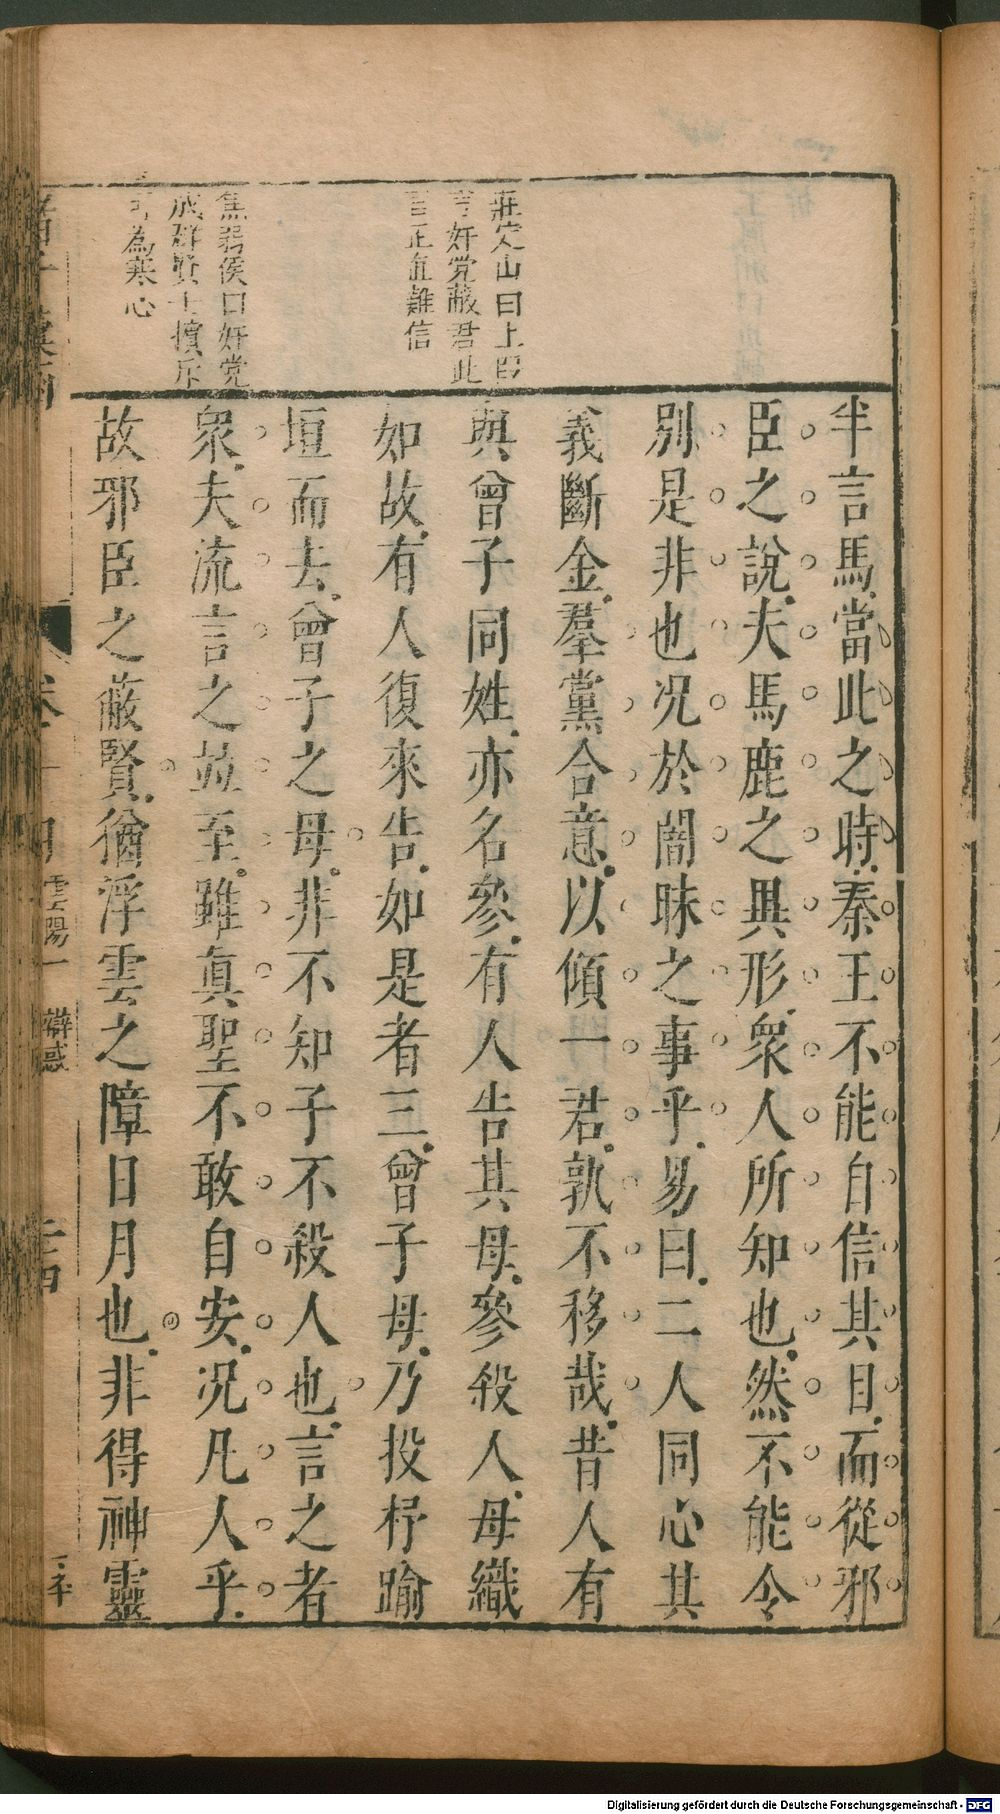 莊定山曰上
言奸党蔽君此
言正直難信
焦弱侯曰奸党
成群賢士擯斥
可為寒心
半言馬當此之時秦王不能自信其目而從邪
臣之說夫馬鹿之異形衆人所知也然不能令
別是非也况於闇昧之事乎易曰二人同心其
義斷金羣黨合意以傾一君孰不移哉昔人有
與曾子同姓亦名參有人告其母參殺人母織
如故有人復來告如是者三曾子母乃投杼踰
垣而去曾子之母非不知子不殺人也言之者
衆夫流言之並至雖眞聖不敢自安况凡人乎
故邪臣之蔽賢猶浮雲之障日月也非得神靈
雲陽一 辯惑
Digitalisierung gefördert durch die Deutsche Forschungsgemeinschaft - DFG